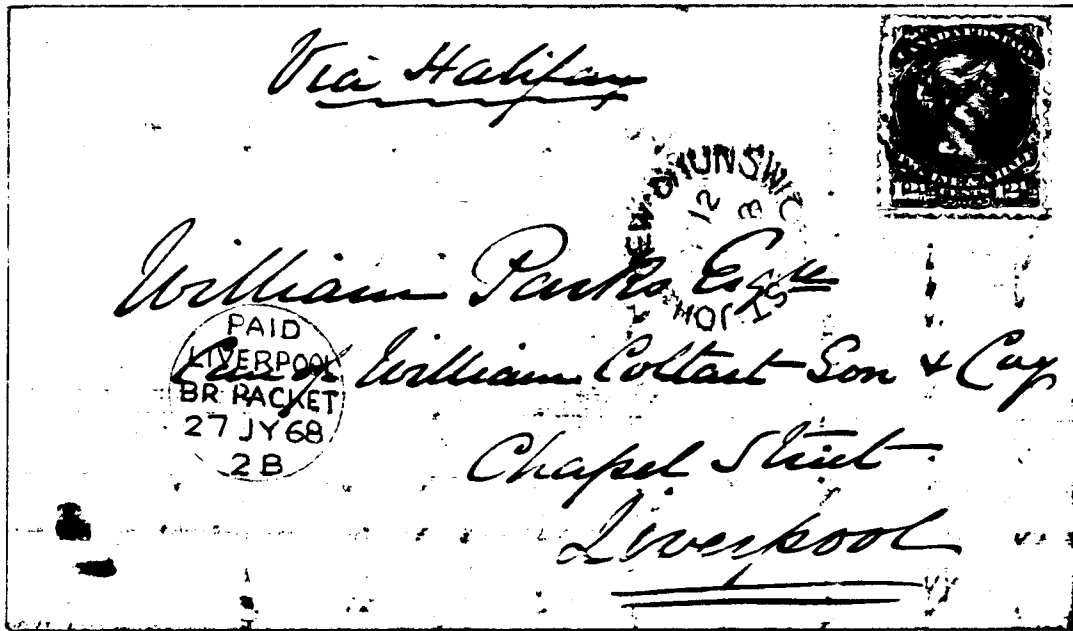 Via Halifax
CANADA POSTAGE
NEW BRUNSWICK
12
ST JOHN
William Parks Esqre
PAID
LIVERPOOL
BR PACKET
27 JY 68
2B
Care of William Coltart Son & Coy
Chapel Street
Liverpool